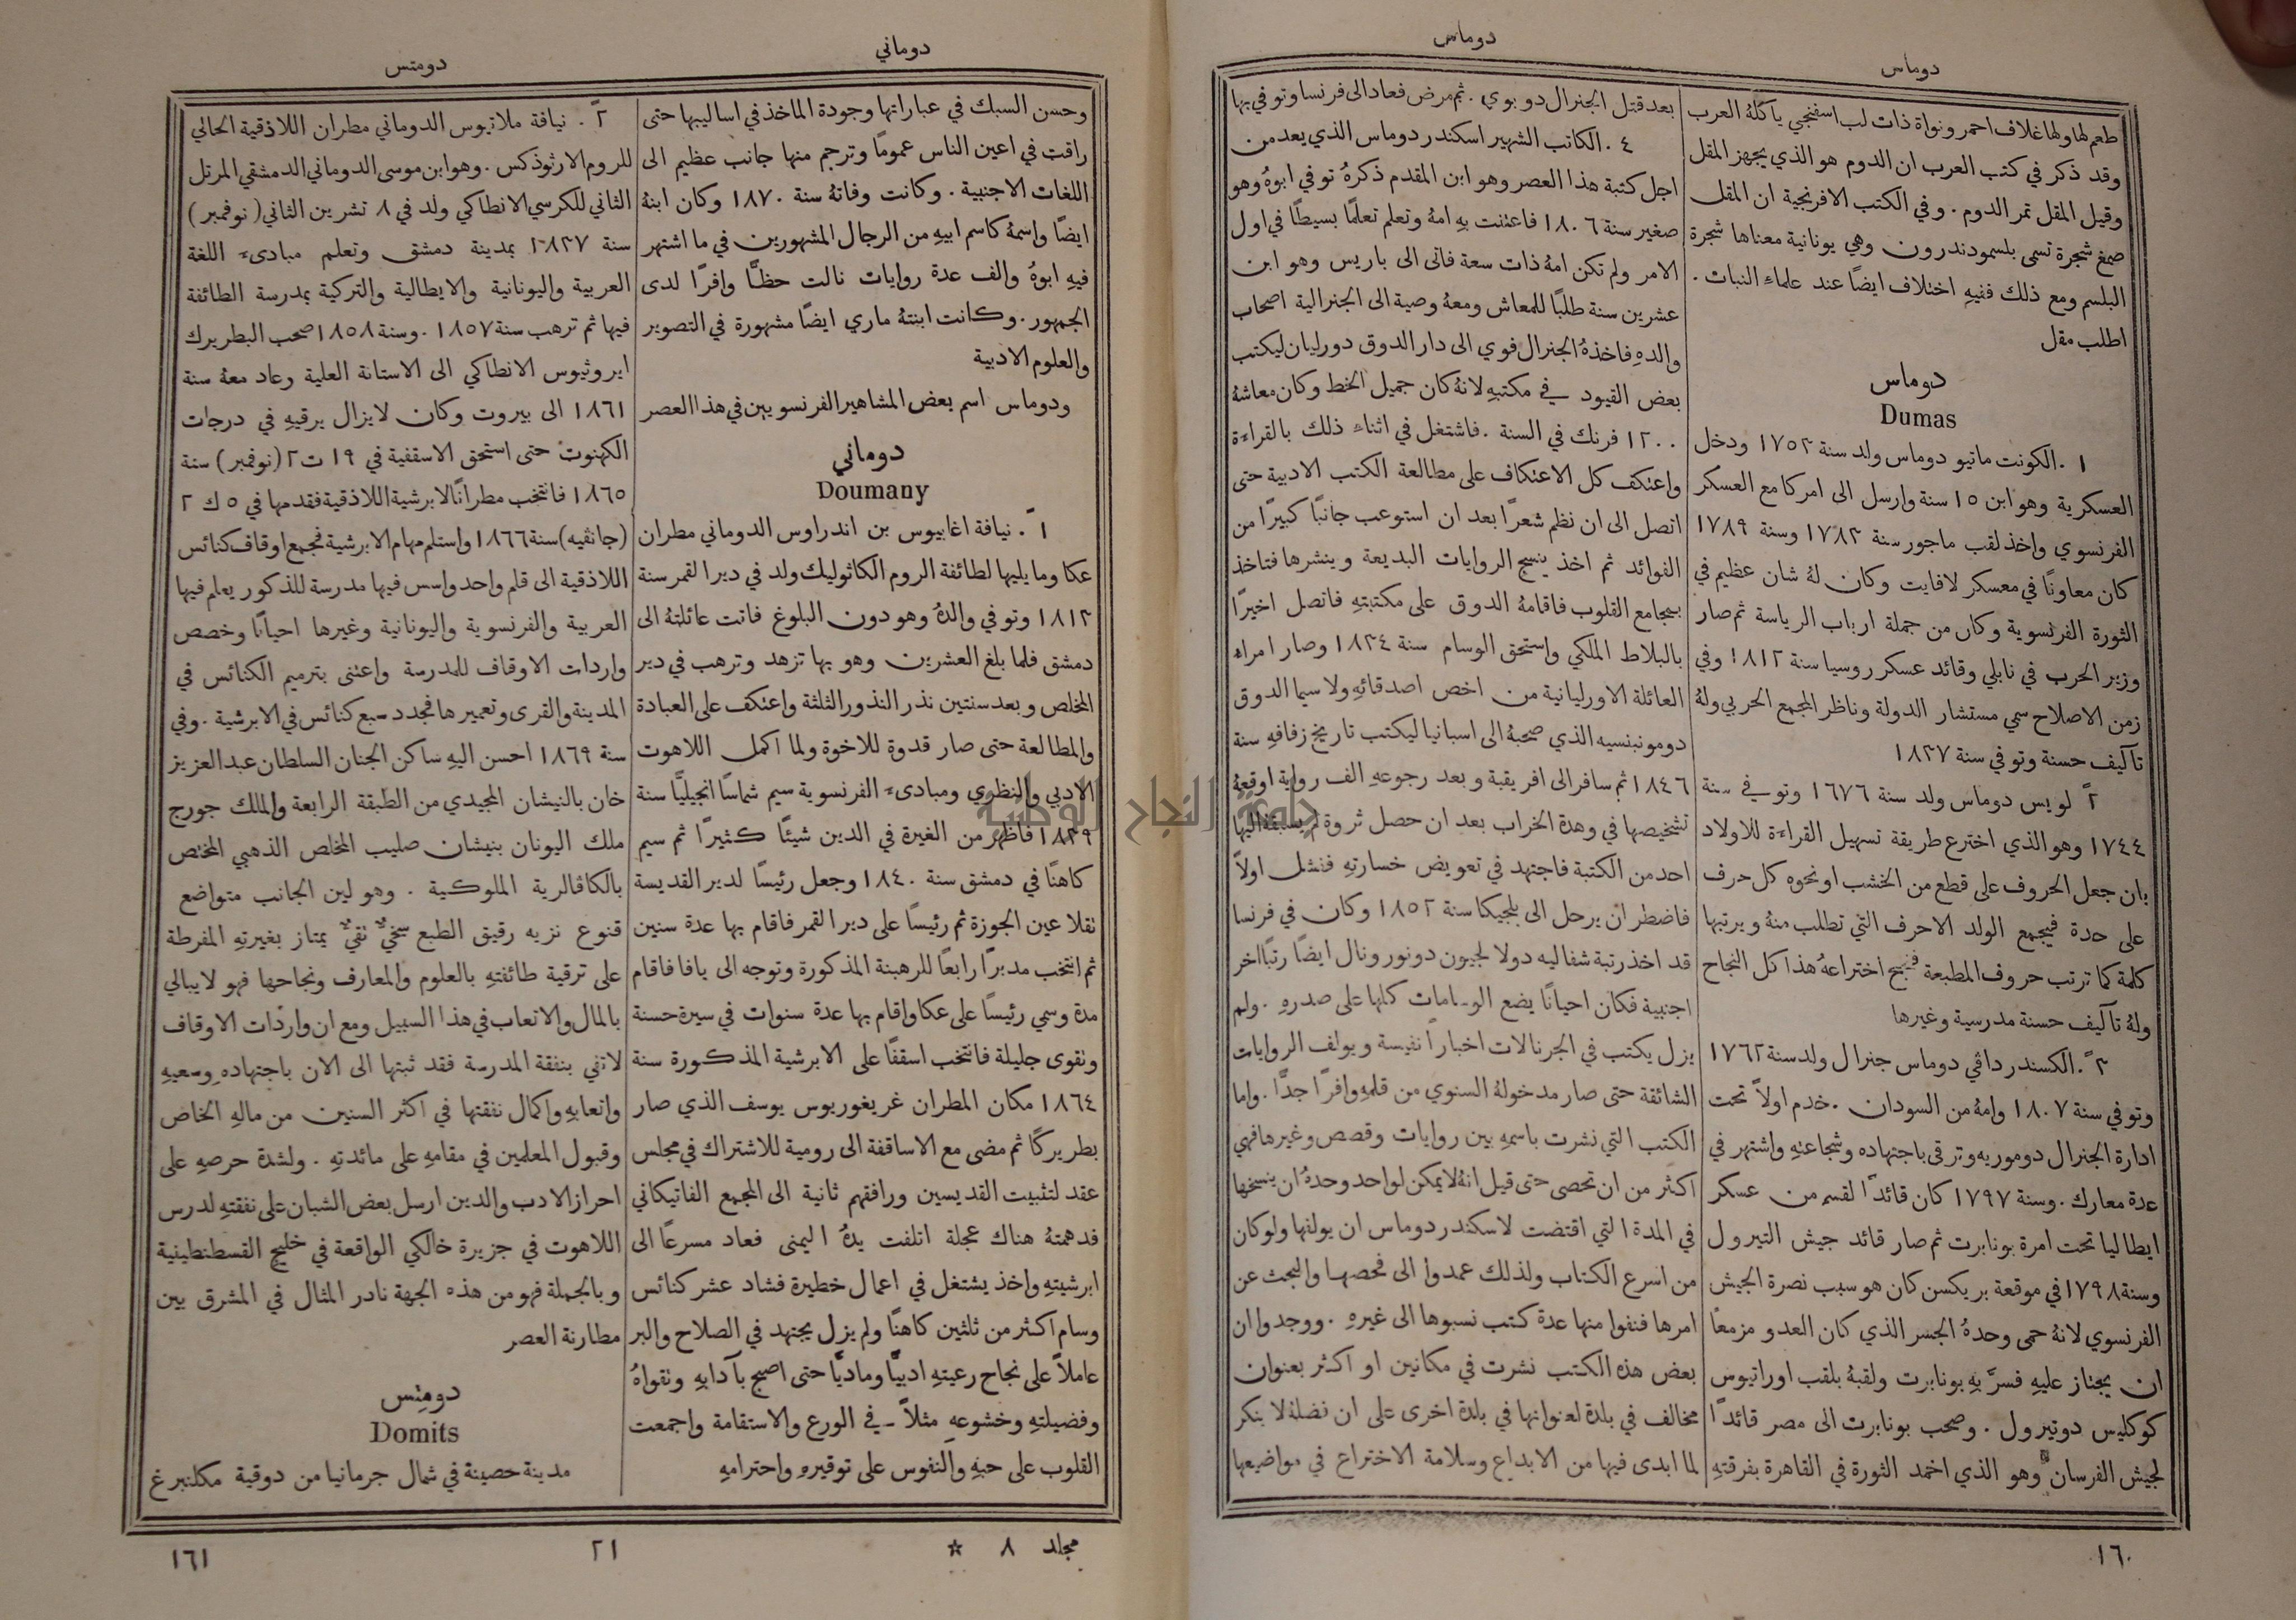 دوماس
دوماس
طعم لها ولها غلاف احمر ونواة ذات لب اسفنجي ياكلهُ العرب
وقد ذكر في كتب العرب ان الدوم هو الذي يجهز المقل
وقيل المقل تمر الدوم . وفي الكتب الافرنجية ان المقل
صمغ شجرة تسمى بلسمودندرون وهي يونانية معناها شجرة
البلسم ومع ذلك ففيهِ اختلاف ايضًا عند علماء النبات .
اطلب مقل
دوماس
Dumas
١ . الكونت ماتيو دوماس ولد سنة ١٧٥٣ ودخل
العسكرية وهو ابن ١٥ سنة وارسل الى امركا مع العسكر
الفرنسوي واخذ لقب ماجور سنة ١٧٨٣ وسنة ١٧٨٩
كان معاونًا في معسكر لافايت وكان لهُ شان عظيم في
الثورة الفرنسوية وكان من جملة ارباب الرياسة ثم صار
وزير الحرب في نابلي وقائد عسكر روسيا سنة ١٨١٢ وفي
زمن الاصلاح سمي مستشار الدولة وناظر المجمع الحربي ولهُ
تآليف حسنة وتوفي سنة ١٨٣٧
٢ً لويس دوماس ولد سنة ١٦٧٦ وتوفي سنة
١٧٤٤ وهو الذي اخترع طريقة تسهيل القراءة للاولاد
بان جعل الحروف على قطع من الخشب او نحوه كل حرف
على حدة فيجمع الولد الاحرف التي تطلب منهُ ويرتبها
كلمة كما ترتب حروف المطبعة فنجح اختراعهُ هذا كل النجاح
ولهُ تآليف حسنة مدرسية وغيرها
٣ً . الكسندر داڤي دوماس جنرال ولد سنة ١٧٦٢
وتوفي سنة ١٨٠٧ وامهُ من السودان . خدم اولاً تحت
ادارة الجنرال دوموريه وترقى باجتهاده وشجاعتهِ واشتهر في
عدة معارك . وسنة ١٧٩٧ كان قائدًا لقسم من عسكر
ايطاليا تحت امرة بونابرت ثم صار قائد جيش التيرول
وسنة ١٧٩٨ في موقعة بريكسن كان هو سبب نصرة الجيش
الفرنسوي لانهُ حمى وحدهُ الجسر الذي كان العدو مزمعًا
ان يجتاز عليهِ فسرَّ بهِ بونابرت ولقبهُ بلقب اوراتيوس
كوكليس دوتيرول . وصحب بونابرت الى مصر قائدًا
لجيش الفرسان وهو الذي اخمد الثورة في القاهرة بفرقتهِ
بعد قتل الجنرال دوبوي . ثم مرض فعاد الى فرنسا وتوفي بها
٤ . الكاتب الشهير اسكندر دوماس الذي يعد من
اجل كتبة هذا العصر وهو ابن المقدم ذكرهُ توفي ابوهُ وهو
صغير سنة ١٨٠٦ فاعتنت بهِ امهُ وتعلم تعلمًا بسيطًا في اول
الامر ولم تكن امهُ ذات سعة فاتى الى باريس وهو ابن
عشرين سنة طلبًا للمعاش ومعهُ وصية الى الجنرالية اصحاب
والدهِ فاخذهُ الجنرال فوي الى دار الدوق دورليان ليكتب
بعض القيود في مكتبهِ لانهُ كان جميل الخط وكان معاشهُ
١٢٠٠ فرنك في السنة . فاشتغل في اثناء ذلك بالقراءة
واعتكف كل الاعتكاف على مطالعة الكتب الادبية حتى
اتصل الى ان نظم شعرًا بعد ان استوعب جانبًا كبيرًا من
الفوائد ثم اخذ ينسج الروايات البديعة وينشرها فتاخذ
بمجامع القلوب فاقامهُ الدوق على مكتبتهِ فاتصل اخيرًا
بالبلاط الملكي واستحق الوسام سنة ١٨٣٤ وصار امراء
العائلة الاورليانية من اخص اصدقائهِ ولاسيما الدوق
دومونبنسيه الذي صحبهُ الى اسبانيا ليكتب تاريخ زفافهِ سنة
١٨٤٦ ثم سافر الى افريقية وبعد رجوعهِ الف رواية اوقعهُ
تشخيصها في وهدة الخراب بعد ان حصل ثروة لم يسبقهُ اليها
احد من الكتبة فاجتهد في تعويض خسارتهِ ففشل اولاً
فاضطر ان يرحل الى بلجيكا سنة ١٨٥٢ وكان في فرنسا
قد اخذ رتبة شفاليه دولا لجيون دونور ونال ايضًا رتبًا اخر
اجنبية فكان احيانًا يضع الوسامات كلها على صدرهِ . ولم
يزل يكتب في الجرنالات اخبارًا نفيسة ويولف الروايات
الشائقة حتى صار مدخولهُ السنوي من قلمهِ وافرًا جدًّا . واما
الكتب التي نشرت باسمهِ بين روايات وقصص وغيرها فهي
اكثر من ان تحصى حتى قيل انهُ لا يمكن لواحد وحدهُ ان ينسخها
في المدة التي اقتضت لاسكندر دوماس ان يولفها ولو كان
من اسرع الكتاب ولذلك عمدوا الى فحصها والبحث عن
امرها فنفوا منها عدة كتب نسبوها الى غيرهِ . ووجدوا ان
بعض هذه الكتب نشرت في مكانين او اكثر بعنوان
مخالف في بلدة لعنوانها في بلدة اخرى على ان فضلهُ لا ينكر
لما ابدى فيها من الابداع وسلامة الاختراع في مواضيعها
١٦٠
دوماني
دومتس
وحسن السبك في عباراتها وجودة المآخذ في اساليبها حتى
راقت في اعين الناس عمومًا وترجم منها جانب عظيم الى
اللغات الاجنبية . وكانت وفاتهُ سنة ١٨٧٠ وكان ابنهُ
ايضًا واسمهُ كاسم ابيهِ من الرجال المشهورين في ما اشتهر
فيهِ ابوهُ والف عدة روايات نالت حظًّا وافرًا لدى
الجمهور . وكانت ابنتهُ ماري ايضًا مشهورة في التصوير
والعلوم الادبية
ودوماس اسم بعض المشاهير الفرنسويين في هذا العصر
دوماني
Doumany
١ً . نيافة اغابيوس بن اندراوس الدوماني مطران
عكا وما يليها لطائفة الروم الكاثوليك ولد في دير القمر سنة
١٨١٢ وتوفي والدهُ وهو دون البلوغ فاتت عائلتهُ الى
دمشق فلما بلغ العشرين وهو بها تزهد وترهب في دير
المخلص وبعد سنتين نذر النذور الثلثة واعتكف على العبادة
والمطالعة حتى صار قدوة للاخوة ولما اكمل اللاهوت
الادبي والنظري ومبادىء الفرنسوية سيم شماسًا انجيليًّا سنة
١٨٣٩ فاظهر من الغيرة في الدين شيئًا كثيرًا ثم سيم
كاهنًا في دمشق سنة ١٨٤٠ وجعل رئيسًا لدير القديسة
تقلا عين الجوزة ثم رئيسًا على دير القمر فاقام بها عدة سنين
ثم انتخب مدبرًا رابعًا للرهبنة المذكورة وتوجه الى يافا فاقام
مدة وسمي رئيسًا على عكا واقام بها عدة سنوات في سيرة حسنة
وتقوى جليلة فانتخب اسقفًا على الابرشية المذكورة سنة
١٨٦٤ مكان المطران غريغوريوس يوسف الذي صار
بطريركًا ثم مضى مع الاساقفة الى رومية للاشتراك في مجلس
عقد لتثبيت القديسين ورافقهم ثانية الى المجمع الفاتيكاني
فدهمتهُ هناك عجلة اتلفت يدهُ اليمنى فعاد مسرعًا الى
ابرشيتهِ واخذ يشتغل في اعمال خطيرة فشاد عشر كنائس
وسام اكثر من ثلثين كاهنًا ولم يزل يجتهد في الصلاح والبر
عاملاً على نجاح رعيتهِ ادبيًّا وماديًّا حتى اصبح بآدابهِ وتقواهُ
وفضيلتهِ وخشوعهِ مثلاً في الورع والاستقامة واجمعت
القلوب على حبهِ والنفوس على توقيرهِ واحترامهِ
٢ً . نيافة ملاتيوس الدوماني مطران اللاذقية الحالي
للروم الارثوذكس . وهو ابن موسى الدوماني الدمشقي المرتل
الثاني للكرسي الانطاكي ولد في ٨ تشرين الثاني ( نوفمبر )
سنة ١٨٣٧ بمدينة دمشق وتعلم مبادىء اللغة
العربية واليونانية والايطالية والتركية بمدرسة الطائفة
فيها ثم ترهب سنة ١٨٥٧ . وسنة ١٨٥٨ صحب البطريرك
ايروثيوس الانطاكي الى الاستانة العلية وعاد معهُ سنة
١٨٦١ الى بيروت وكان لا يزال يرقيهِ في درجات
الكهنوت حتى استحق الاسقفية في ١٩ ت٢ (نوفمبر) سنة
١٨٦٥ فانتخب مطرانًا لابرشية اللاذقية فقدمها في ٥ ك ٢
(جانڤيه) سنة ١٨٦٦ واستلم مهام الابرشية فجمع اوقاف كنائس
اللاذقية الى قلم واحد واسس فيها مدرسة للذكور يعلم فيها
العربية والفرنسوية واليونانية وغيرها احيانًا وخصص
واردات الاوقاف للمدرسة واعتنى بترميم الكنائس في
المدينة والقرى وتعميرها فجدد سبع كنائس في الابرشية . وفي
سنة ١٨٦٩ احسن اليهِ ساكن الجنان السلطان عبد العزيز
خان بالنيشان المجيدي من الطبقة الرابعة والملك جورج
ملك اليونان بنيشان صليب المخلص الذهبي المختص
بالكاڤالرية الملوكية . وهو لين الجانب متواضع
قنوع نزيه رقيق الطبع سخيٌّ نقيٌّ يمتاز بغيرتهِ المفرطة
على ترقية طائفتهِ بالعلوم والمعارف ونجاحها فهو لا يبالي
بالمال والاتعاب في هذا السبيل ومع ان واردات الاوقاف
لا تفي بنفقة المدرسة فقد ثبتها الى الان باجتهادهِ وسعيهِ
واتعابهِ واكمال نفقتها في اكثر السنين من مالهِ الخاص
وقبول المعلمين في مقامهِ على مائدتهِ . ولشدة حرصهِ على
احراز الادب والدين ارسل بعض الشبان على نفقتهِ لدرس
اللاهوت في جزيرة خالكي الواقعة في خليج القسطنطينية
وبالجملة فهو من هذه الجهة نادر المثال في المشرق بين
مطارنة العصر
دومتِس
Domits
مدينة حصينة في شمال جرمانيا من دوقية مكلنبرغ
مجلد ٨ * ٢١ ١٦١